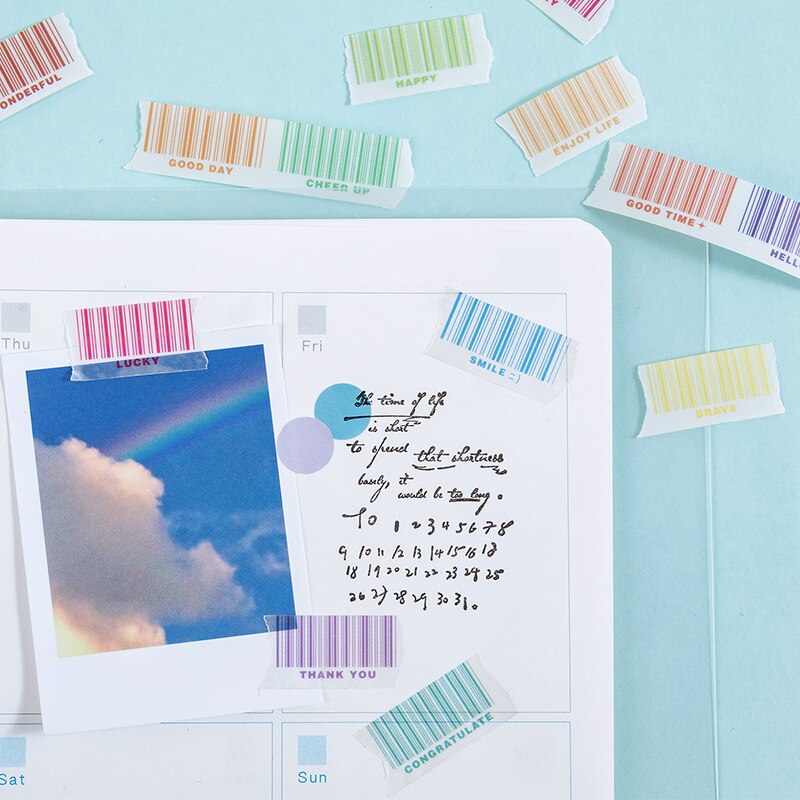 ONDERFUL
HAPPY
GOOD DAY
CHEER UP
ENJOY LIFE
GOOD TIME
HELL
Thu
LUCKY
Fri
SMILE =)
BRAVE
The time of life
is short
to spend that shortness
basely, it
would be too long.
To 1 2 3 4 5 6 7 8
9 10 11 12 13 14 15 16 18
18 19 20 21 22 23 24 25
26 27 28 29 30 31.
THANK YOU
CONGRATULATE
Sat
Sun